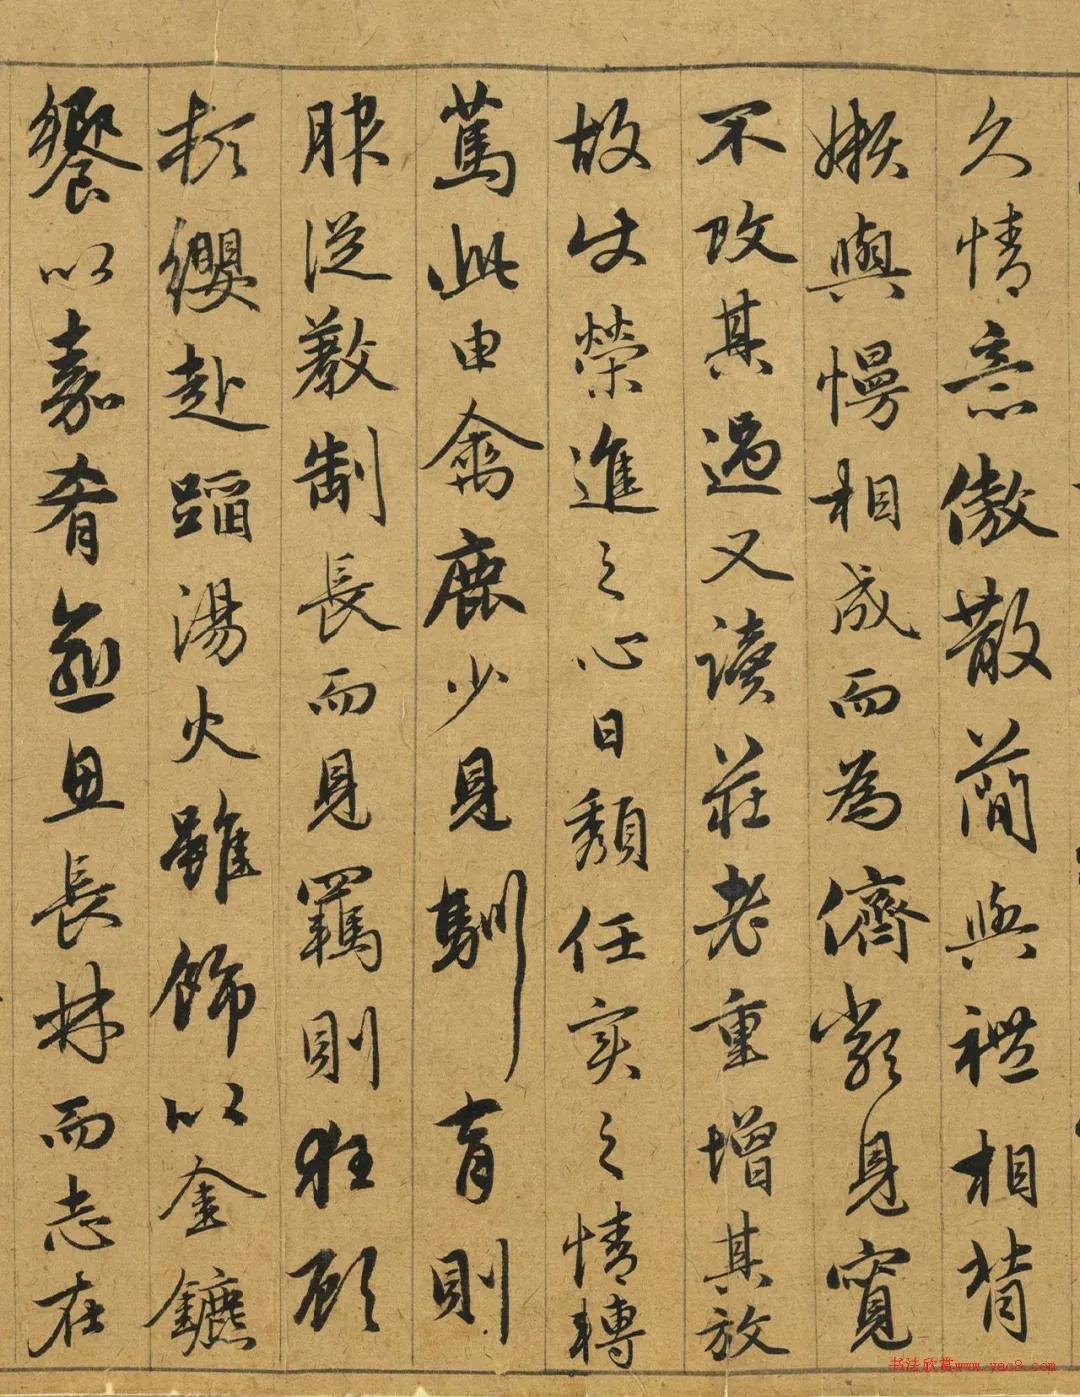 久情意傲散簡與禮相背
嬾與慢相成而為儕類見寬
不攻其過又读莊老重增其放
故使榮進之心日頹任实之情轉
篤此由禽鹿少見馴育則
服從教制長而見羈則狂顧
頓纓赴蹈湯火雖飾以金鑣
饗以嘉肴愈思長林而志在
书法欣赏www.yac8.com